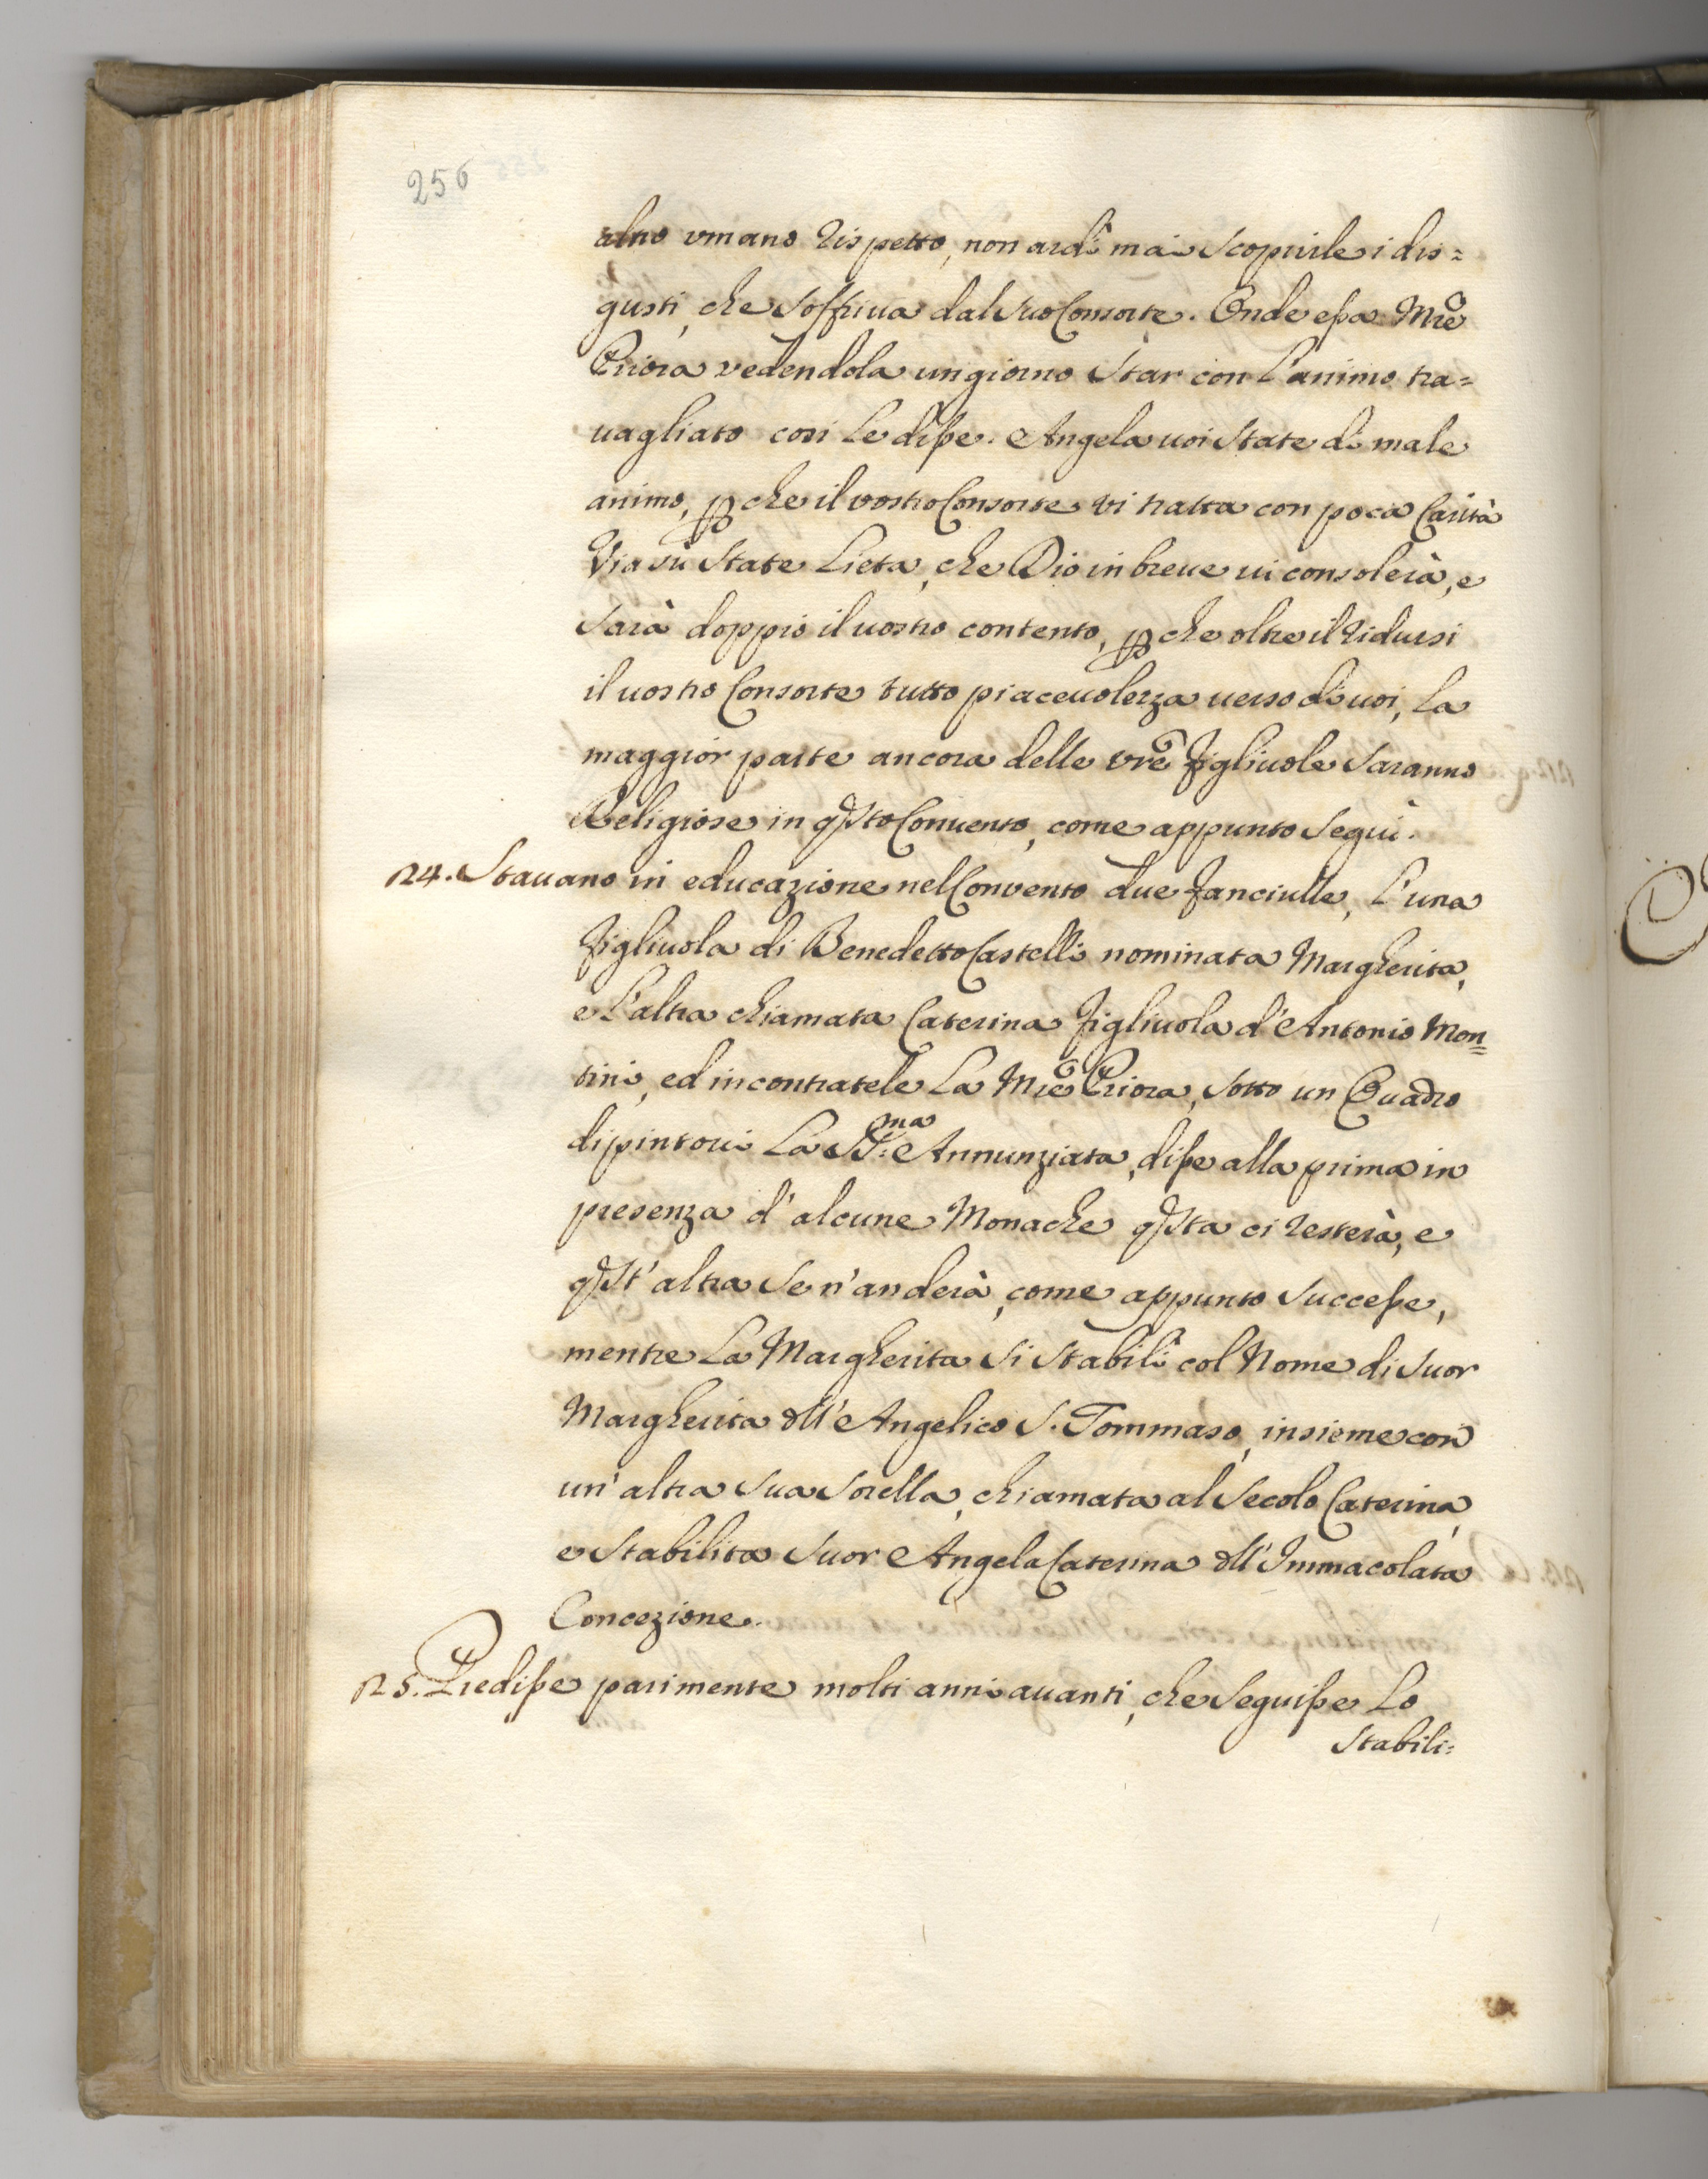 256
altro vmano rispetto, non ardì mai scoprirle i dis=
gusti, che soffriua dal suo Consorte. Onde essa Mrẽ
Priora vedendola un giorno star con l'animo tra=
uagliato così le disse. Angela uoi state di male
animo, p̱che il vostro Consorte vi tratta con poca Carità
Via sù state lieta, che Dio in breue ui consolerà, e
sarà doppio il uostro contento, p̱che oltre il ridursi
il uostro Consorte tutto piaceuolezza uerso di uoi, la
maggior parte ancora delle vrẽ figliuole saranno
Religiose in qsto Conuento, come appunto seguì.
24. Stauano in educazione nel Convento due fanciulle, l'una
figliuola di Benedetto Castelli nominata Margherita,
e l'altra chiamata Caterina figliuola d'Antonio Mon=
tini, ed incontratele la Mrẽ Priora, sotto un Quadro
dipintoui la SS:ma Annunziata, disse alla prima in
presenza d'alcune Monache qsta ci resterà, e
qst'altra se n'anderà, come appunto successe,
mentre la Margherita si stabilì col Nome di Suor
Margherita dll'Angelico S. Tommaso, insieme con
un'altra sua sorella, chiamata al Secolo Caterina,
e stabilita Suor Angela Caterina dll'Immacolata
Concezione.
25. Predisse parimente molti anni auanti, che seguisse lo
stabili=